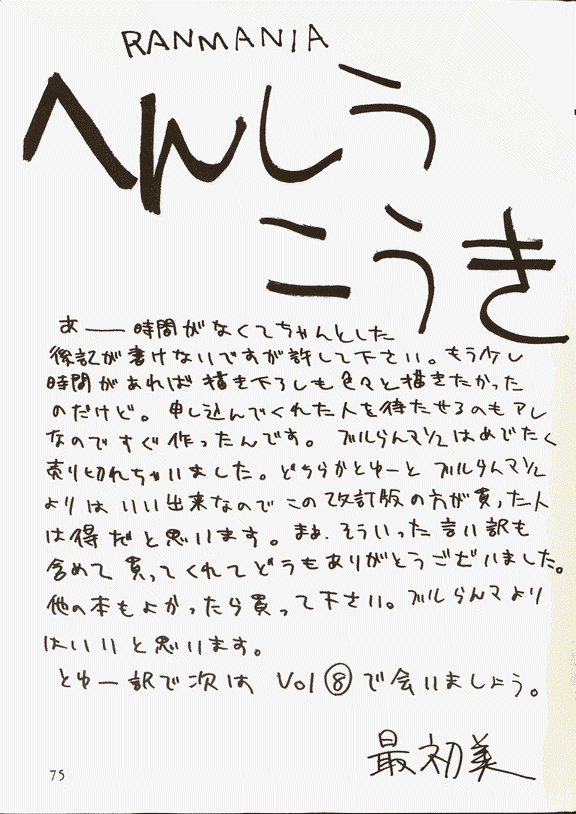 RANMANIA
へんしう
こうき
あ──時間がなくてちゃんとした
後記が書けないですが許して下さい。もう少し
時間があれば描き下ろしも色々と描きたかった
のだけど。申し込んでくれた人を待たせるのもアレ
なのですぐ作ったんです。ブルらんマ1/2はめでたく
売り切れちゃいました。どちらかとゆーとブルらんマ1/2
よりはいい出来なのでこの改訂版の方が買った人
は得だと思います。まぁ、そういった言い訳も
含めて買ってくれてどうもありがとうございました。
他の本もよかったら買って下さい。ブルらんマより
はいいと思います。
とゆー訳で次はVol⑧で会いましょう。
最初美
75